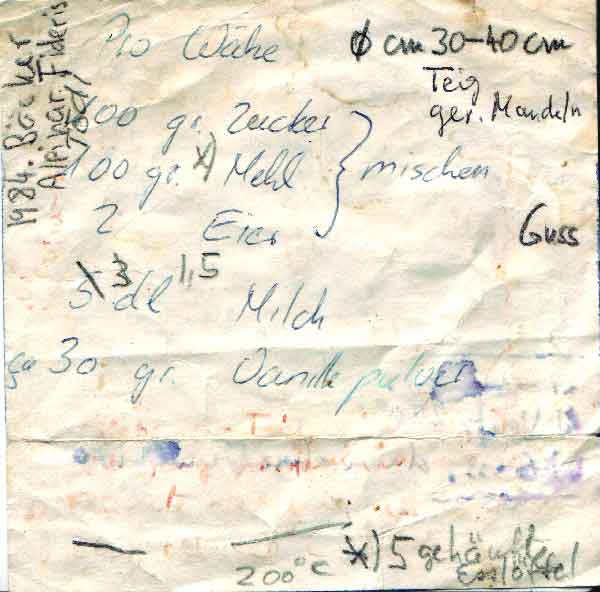 1984. Bäcker
Alpinar Fideris
Pro Wähe ϕ cm 30-40 cm
Teig
ger. Mandeln
100 gr. Zucker
100 gr. x) Mehl } mischen
2 Eier
Guss
5 3 dl 1,5 Milch
ca 30 gr. Vanillepulver
200°C
x) 5 gehäufte
Esslöffel